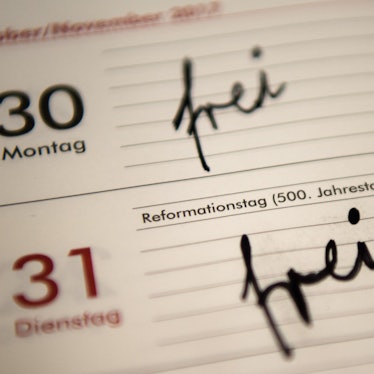 ober/November 2017
30 frei
Montag
Reformationstag (500. Jahresta
31 frei
Dienstag